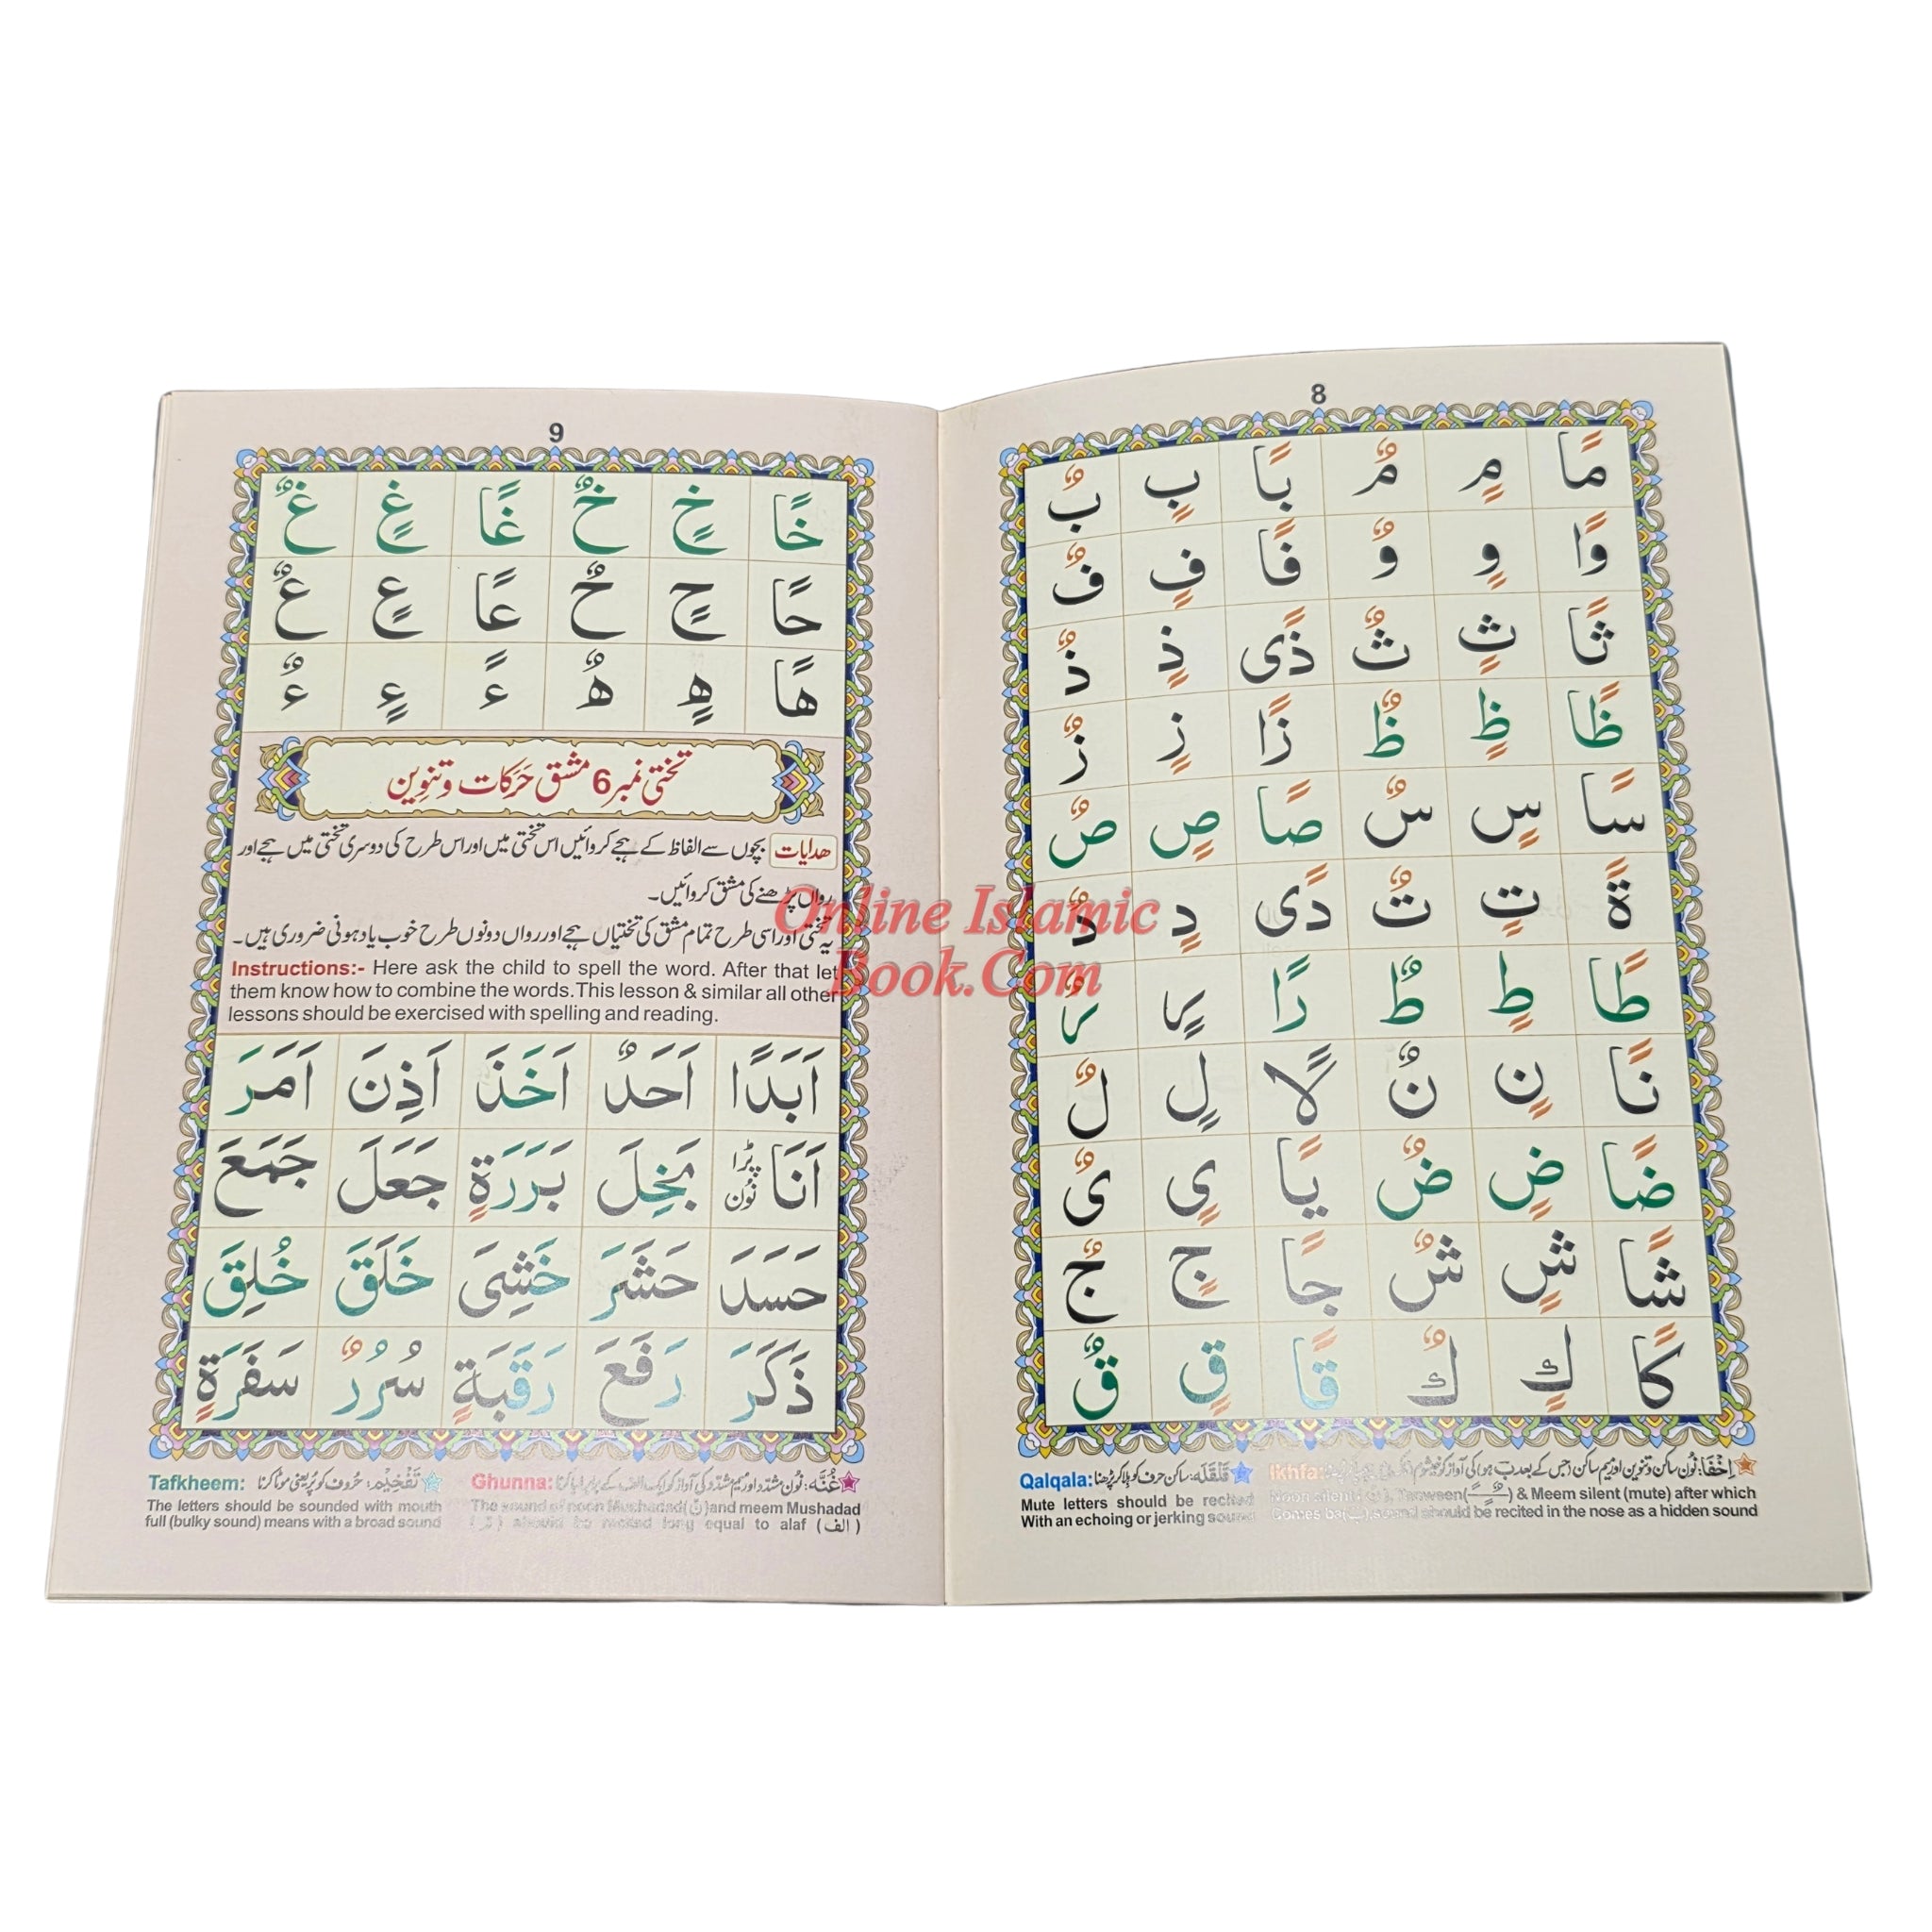 8
مًا مٍ مٌ بًا بٍ بٌ
وًا وٍ وٌ فًا فٍ فٌ
ثًا ثٍ ثٌ ذًى ذٍ ذٌ
ظًا ظٍ ظٌ زًا زٍ زٌ
سًا سٍ سٌ صًا صٍ صٌ
ةً تٍ تٌ دًى دٍ دٌ
طًا طٍ طٌ رًا رٍ رٌ
نًا نٍ نٌ لًا لٍ لٌ
ضًا ضٍ ضٌ يًا یٍ یٌ
شًا شٍ شٌ جًا جٍ جٌ
كًا كٍ كٌ قًا قٍ قٌ
اِخْفَا: نُون ساکن و تنوین اور میم ساکن (جس کے بعد ب ہو) کی آواز کو
Ikhfa:
Noon silent Tanween & Meem silent (mute) after which
Comes ba(ب) sound should be recited in the nose as a hidden sound
قَلْقَلَه: ساکن حرف کو ہلا کر پڑھنا
Qalqala:
Mute letters should be recited
With an echoing or jerking sound
9
خًا خٍ خٌ غًا غٍ غٌ
حًا حٍ حٌ عًا عٍ عٌ
هًا هٍ هٌ ءً ءٍ ءٌ
تختی نمبر 6 مشق حَرَکات و تنوین
ھدایات بچوں سے الفاظ کے ہجے کروائیں اس تختی میں اور اس طرح کی دوسری تختی میں ہجے اور
رواں پڑھنے کی مشق کروائیں۔
یہ تختی اور اسی طرح تمام مشق کی تختیاں ہجے اور رواں دونوں طرح خوب یاد ہونی ضروری ہیں۔
Instructions:- Here ask the child to spell the word. After that let
them know how to combine the words.This lesson & similar all other
lessons should be exercised with spelling and reading.
اَبَدًا اَحَدٌ اَخَذَ اَذِنَ اَمَرَ
اَنَا پڑا نُون بَخِلَ بَرَرَةٍ جَعَلَ جَمَعَ
حَسَدَ حَشَرَ خَشِیَ خَلَقَ خُلِقَ
ذَكَرَ رَفَعَ رَقَبَةٍ سُرُرٌ سَفَرَةٍ
غُنَّه: نُون مشدّد اور میم مشدّد کی آواز کو ایک الف کے برابر لمبا کرنا
Ghunna:
The sound of noon Mushadad(نّ)and meem Mushadad
(مّ) should be recited long equal to alaf (الف)
تَفْخِیْم: حُروف کو پُر یعنی موٹا کرنا
Tafkheem:
The letters should be sounded with mouth
full (bulky sound) means with a broad sound
Online Islamic
Book.Com